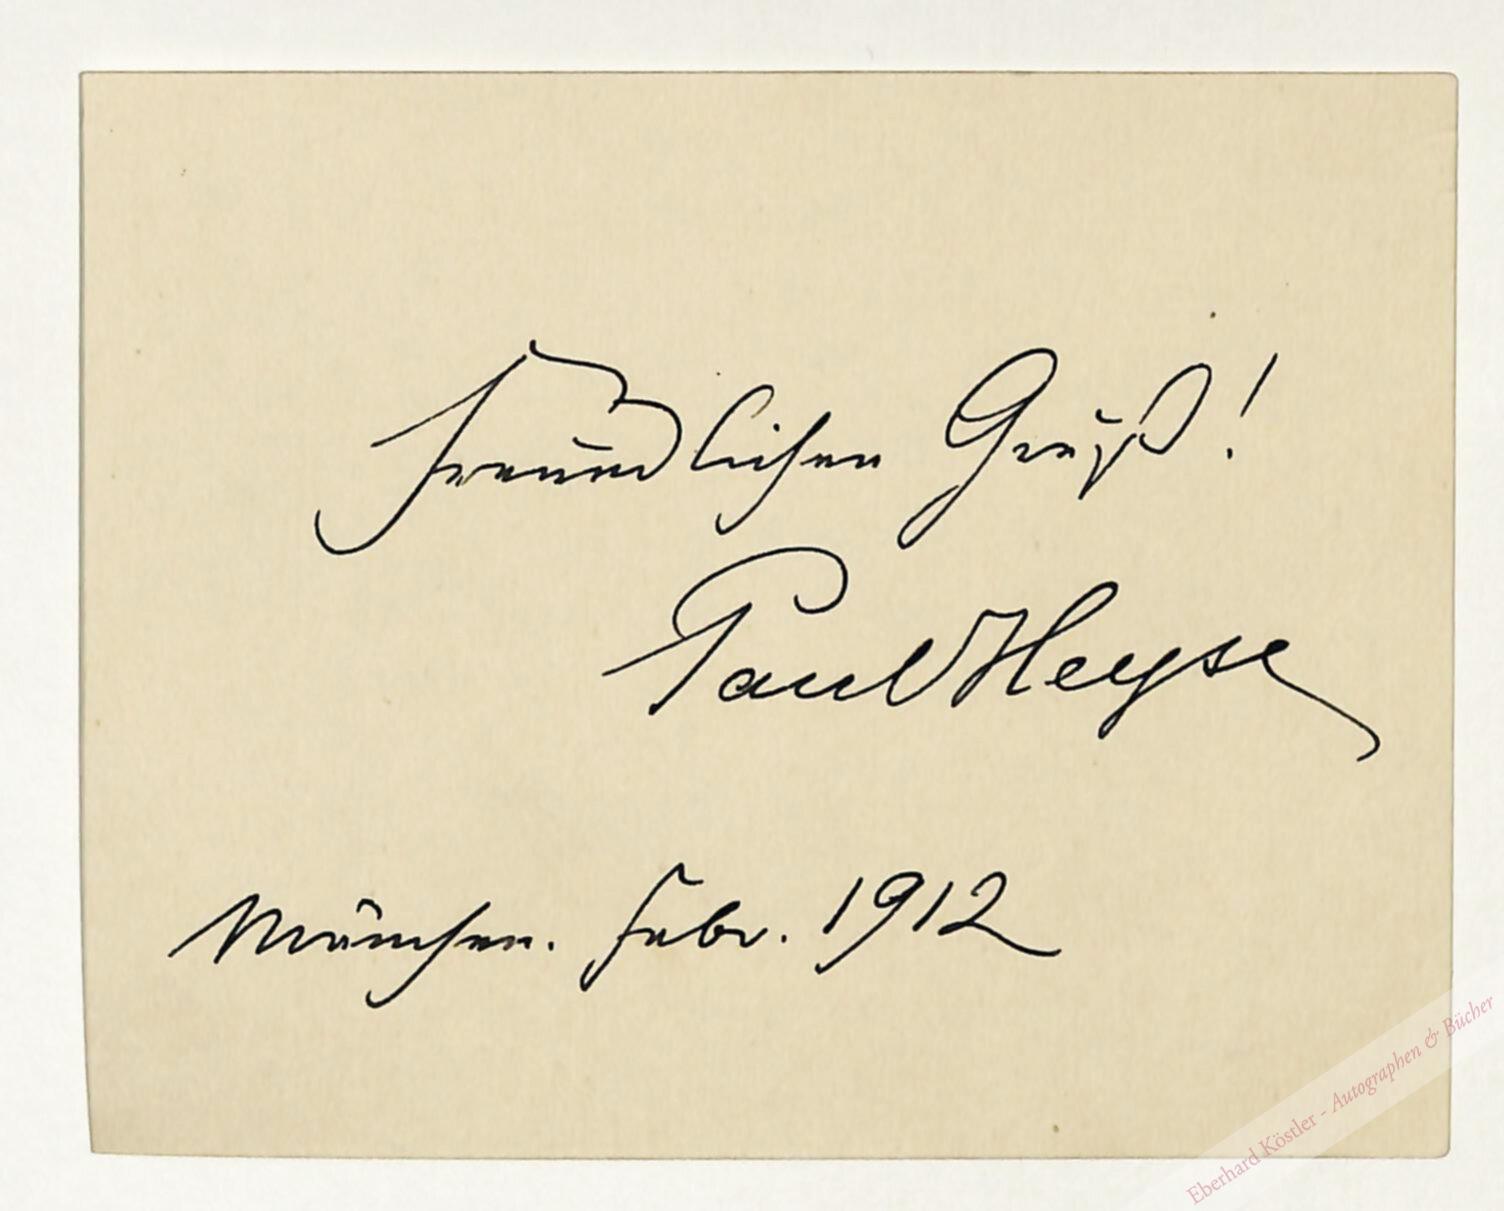 Freundlichen Gruß!
Paul Heyse
München. Febr. 1912
Eberhard Köstler - Autographen & Bücher